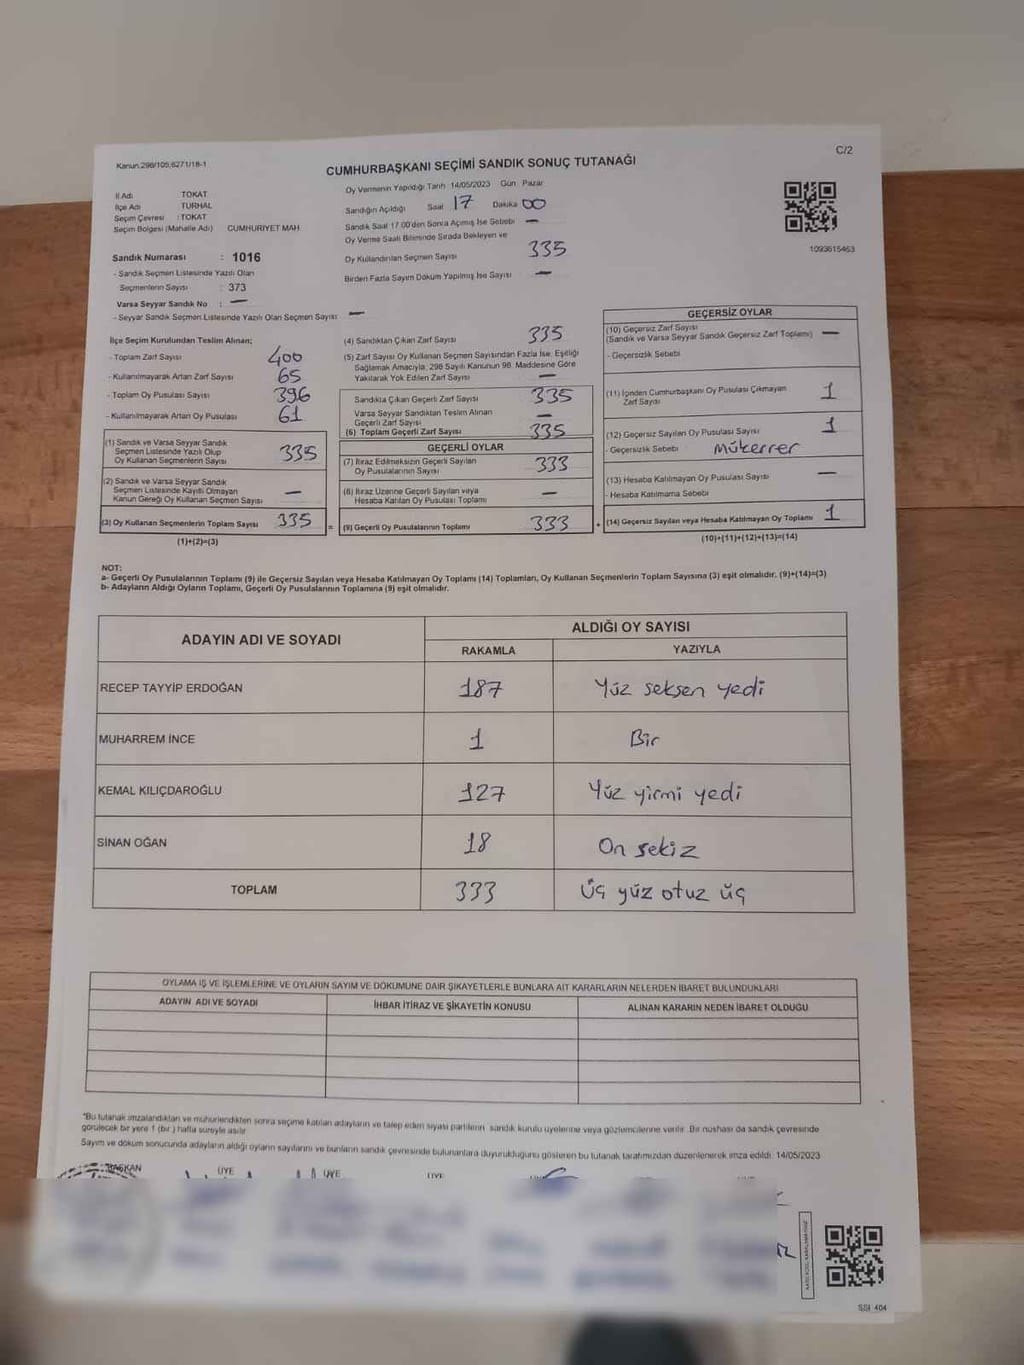 Kanun:298/105,6271/18-1
CUMHURBAŞKANI SEÇİMİ SANDIK SONUÇ TUTANAĞI
C/2
İl Adı TOKAT
İlçe Adı TURHAL
Seçim Çevresi : TOKAT
Seçim Bölgesi (Mahalle Adı) CUMHURİYET MAH
Oy Vermenin Yapıldığı Tarih 14/05/2023 Gün Pazar
Sandığın Açıldığı Saat 17 Dakika 00
Sandık Saat 17.00'den Sonra Açılmış İse Sebebi —
Oy Verme Saati Bitiminde Sırada Bekleyen ve
Oy Kullandırılan Seçmen Sayısı 335
Birden Fazla Sayım Döküm Yapılmış İse Sayısı —
1093615463
Sandık Numarası : 1016
- Sandık Seçmen Listesinde Yazılı Olan
Seçmenlerin Sayısı : 373
Varsa Seyyar Sandık No : —
- Seyyar Sandık Seçmen Listesinde Yazılı Olan Seçmen Sayısı —
İlçe Seçim Kurulundan Teslim Alınan;
- Toplam Zarf Sayısı 400
- Kullanılmayarak Artan Zarf Sayısı 65
- Toplam Oy Pusulası Sayısı 396
- Kullanılmayarak Artan Oy Pusulası 61
(1) Sandık ve Varsa Seyyar Sandık
Seçmen Listesinde Yazılı Olup
Oy Kullanan Seçmenlerin Sayısı 335
(2) Sandık ve Varsa Seyyar Sandık
Seçmen Listesinde Kayıtlı Olmayan
Kanun Gereği Oy Kullanan Seçmen Sayısı —
(3) Oy Kullanan Seçmenlerin Toplam Sayısı 335
(1)+(2)=(3)
(4) Sandıktan Çıkan Zarf Sayısı 335
(5) Zarf Sayısı Oy Kullanan Seçmen Sayısından Fazla İse, Eşitliği
Sağlamak Amacıyla, 298 Sayılı Kanunun 98. Maddesine Göre
Yakılarak Yok Edilen Zarf Sayısı —
Sandıkta Çıkan Geçerli Zarf Sayısı 335
Varsa Seyyar Sandıktan Teslim Alınan
Geçerli Zarf Sayısı —
(6) Toplam Geçerli Zarf Sayısı 335
GEÇERLİ OYLAR
(7) İtiraz Edilmeksizin Geçerli Sayılan
Oy Pusulalarının Sayısı 333
(8) İtiraz Üzerine Geçerli Sayılan veya
Hesaba Katılan Oy Pusulası Toplamı —
= (9) Geçerli Oy Pusulalarının Toplamı 333 +
GEÇERSİZ OYLAR
(10) Geçersiz Zarf Sayısı
(Sandık ve Varsa Seyyar Sandık Geçersiz Zarf Toplamı) —
- Geçersizlik Sebebi
(11) İçinden Cumhurbaşkanı Oy Pusulası Çıkmayan
Zarf Sayısı 1
(12) Geçersiz Sayılan Oy Pusulası Sayısı 1
- Geçersizlik Sebebi Mükerrer
(13) Hesaba Katılmayan Oy Pusulası Sayısı —
- Hesaba Katılmama Sebebi
(14) Geçersiz Sayılan veya Hesaba Katılmayan Oy Toplamı 1
(10)+(11)+(12)+(13)=(14)
NOT:
a- Geçerli Oy Pusulalarının Toplamı (9) ile Geçersiz Sayılan veya Hesaba Katılmayan Oy Toplamı (14) Toplamları, Oy Kullanan Seçmenlerin Toplam Sayısına (3) eşit olmalıdır. (9)+(14)=(3)
b- Adayların Aldığı Oyların Toplamı, Geçerli Oy Pusulalarının Toplamına (9) eşit olmalıdır.
ADAYIN ADI VE SOYADI
ALDIĞI OY SAYISI
RAKAMLA YAZIYLA
RECEP TAYYİP ERDOĞAN 187 Yüz seksen yedi
MUHARREM İNCE 1 Bir
KEMAL KILIÇDAROĞLU 127 Yüz yirmi yedi
SİNAN OĞAN 18 On sekiz
TOPLAM 333 Üç yüz otuz üç
OYLAMA İŞ VE İŞLEMLERİNE VE OYLARIN SAYIM VE DÖKÜMÜNE DAİR ŞİKAYETLERLE BUNLARA AİT KARARLARIN NELERDEN İBARET BULUNDUKLARI
ADAYIN ADI VE SOYADI İHBAR İTİRAZ VE ŞİKAYETİN KONUSU ALINAN KARARIN NEDEN İBARET OLDUĞU
*Bu tutanak imzalandıktan ve mühürlendikten sonra seçime katılan adayların ve talep eden siyasi partilerin sandık kurulu üyelerine veya gözlemcilerine verilir. Bir nüshası da sandık çevresinde
görülecek bir yere 1 (bir) hafta süreyle asılır.
Sayım ve döküm sonucunda adayların aldığı oyların sayılarını ve bunların sandık çevresinde bulunanlara duyurulduğunu gösteren bu tutanak tarafımızdan düzenlenerek imza edildi. 14/05/2023
BAŞKAN ÜYE ÜYE ÜYE
SSI 404